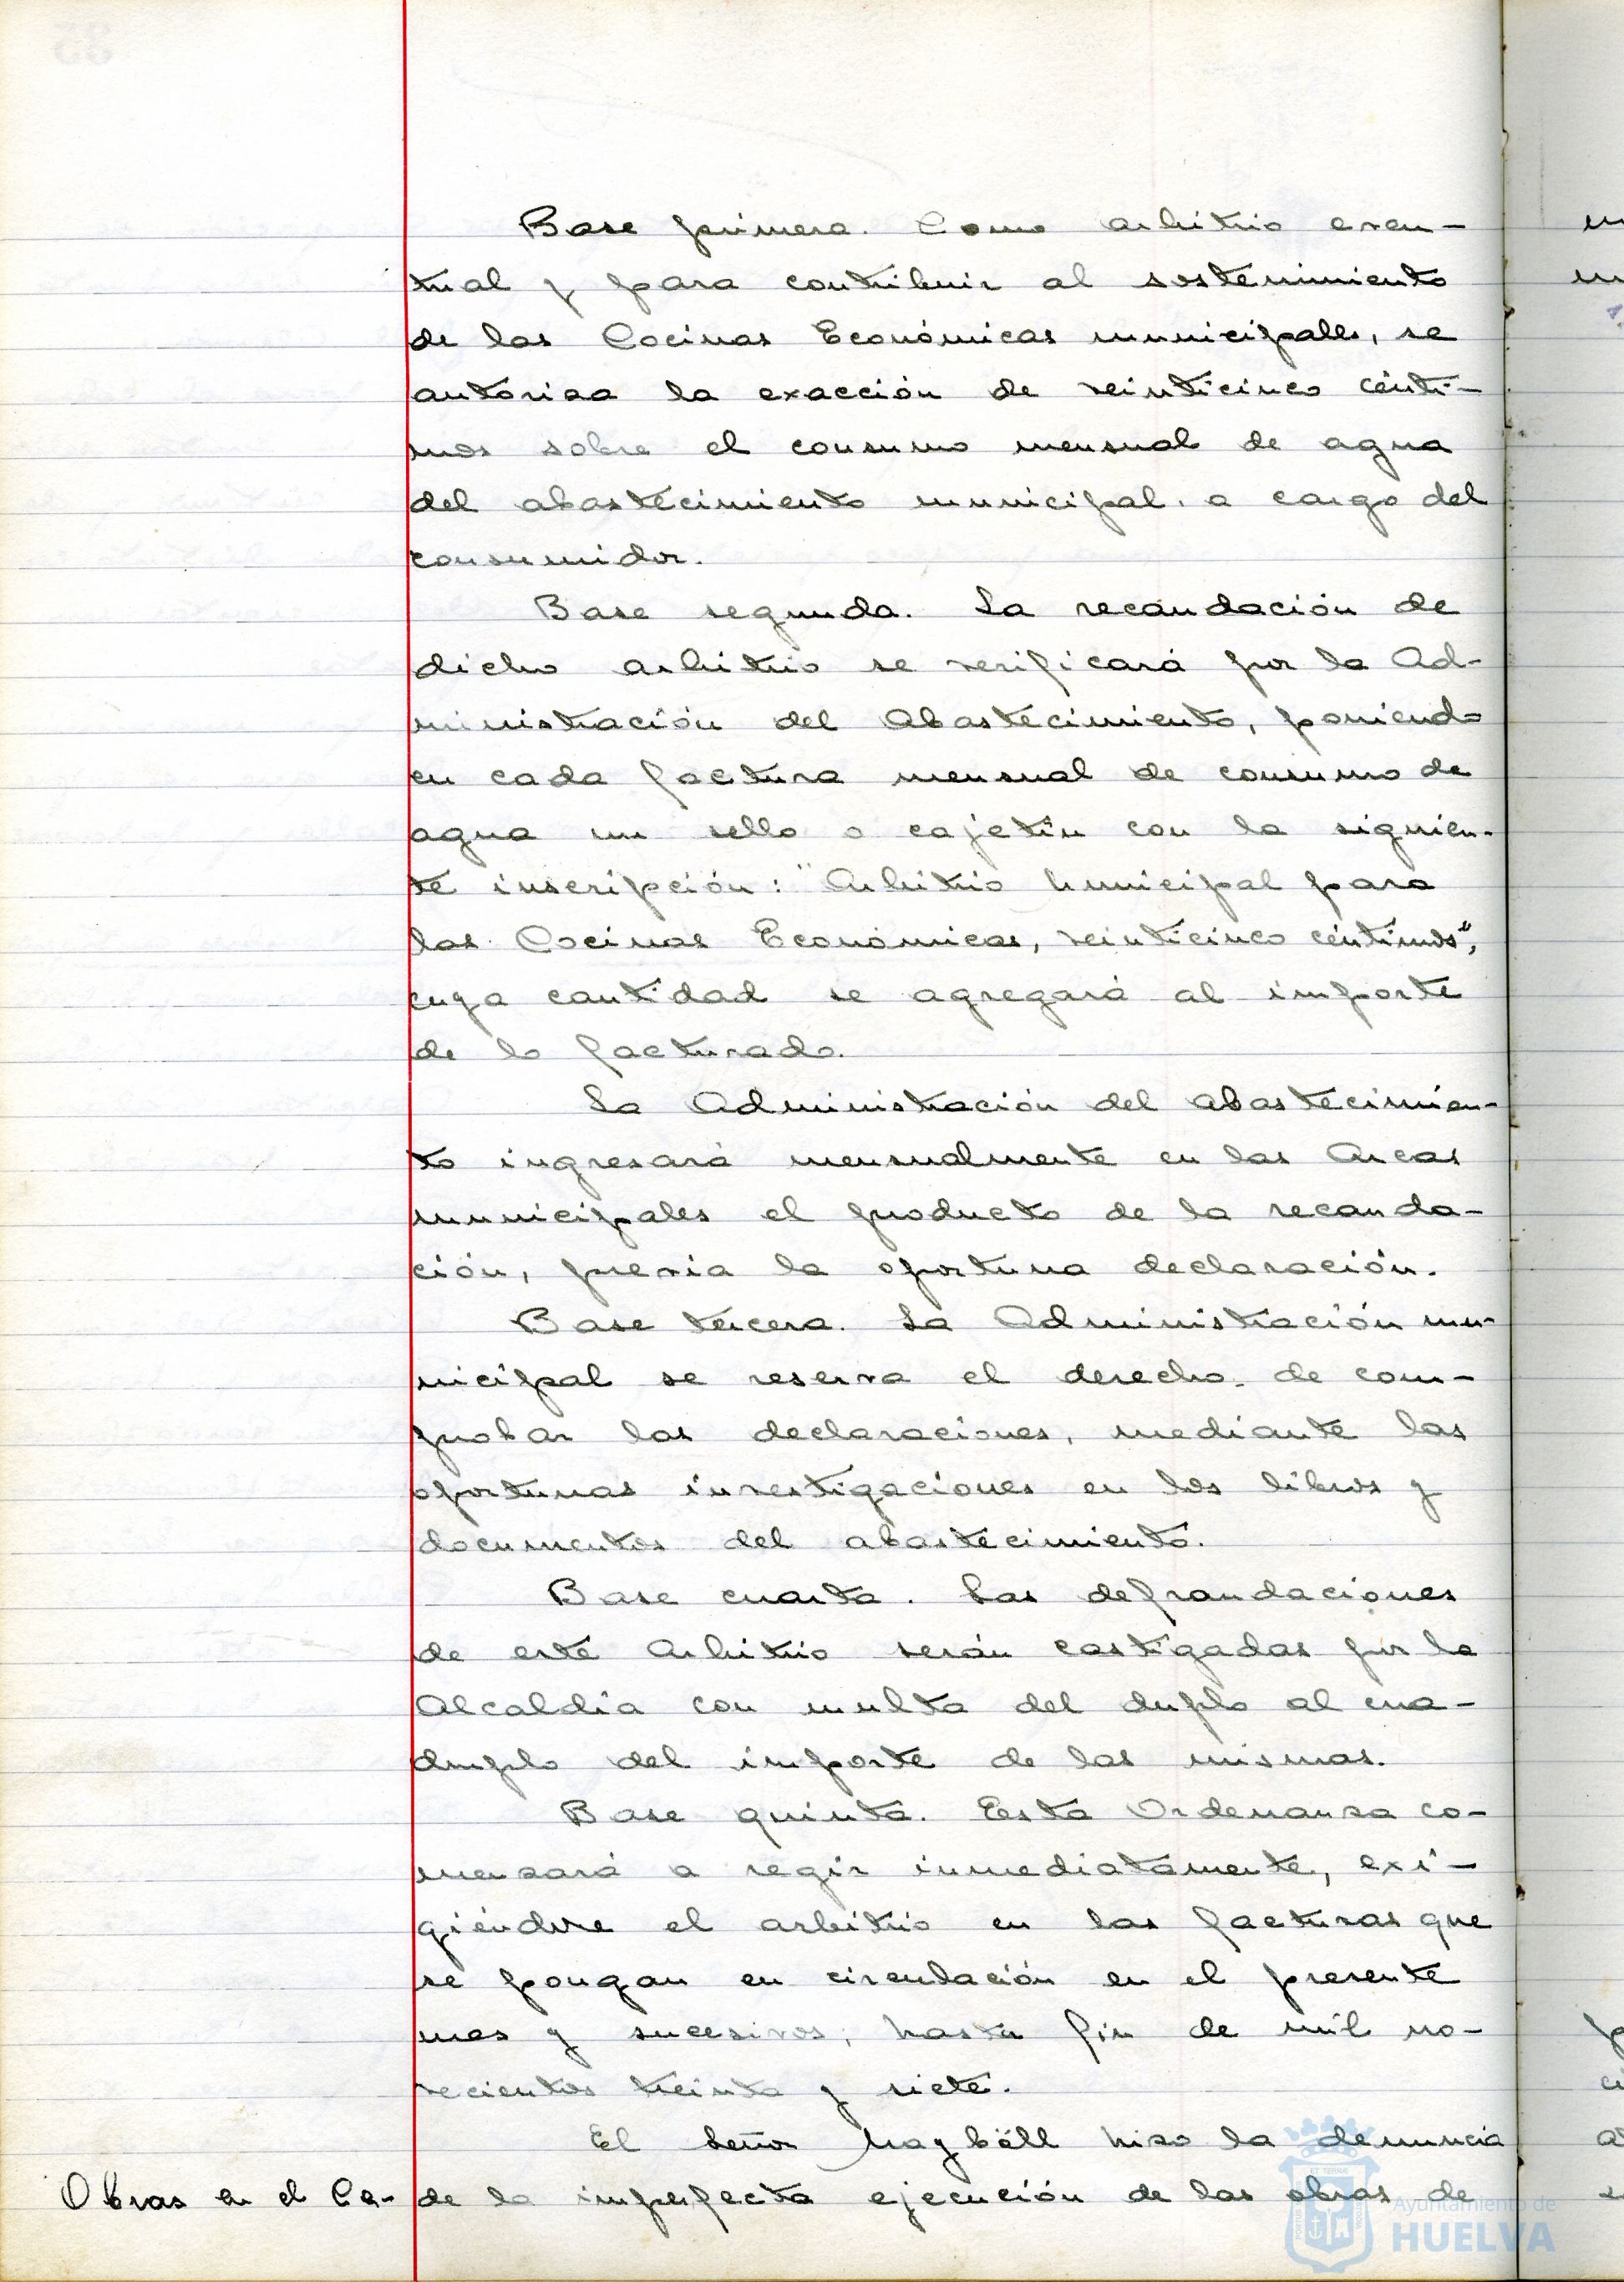 Base primera. Como arbitrio even-
tual y para contribuir al sostenimiento
de las Cocinas Económicas municipales, se
autoriza la exacción de veinticinco cénti-
mos sobre el consumo mensual de agua
del abastecimiento municipal, a cargo del
consumidor.
Base segunda. La recaudación de
dicho arbitrio se verificará por la Ad-
ministración del Abastecimiento, poniendo
en cada factura mensual de consumo de
agua un sello o cajetín con la siguien-
te inscripción: "Arbitrio Municipal para
las Cocinas Económicas, veinticinco céntimos",
cuya cantidad se agregará al importe
de lo facturado.
La Administración del abastecimien-
to ingresará mensualmente en las Arcas
municipales el producto de la recauda-
ción, previa la oportuna declaración.
Base tercera. La Administración mu-
nicipal se reserva el derecho de com-
probar las declaraciones, mediante las
oportunas investigaciones en los libros y
documentos del abastecimiento.
Base cuarta. Las defraudaciones
de este Arbitrio serán castigadas por la
Alcaldía con multa del duplo al cua-
druplo del importe de las mismas.
Base quinta. Esta Ordenanza co-
menzará a regir inmediatamente, exi-
giéndose el arbitrio en las facturas que
se pongan en circulación en el presente
mes y sucesivos, hasta fin de mil no-
vecientos treinta y siete.
El Señor Mayböll hizo la denuncia
Obras en el Ce- de la imperfecta ejecución de las obras de
Ayuntamiento de
HUELVA